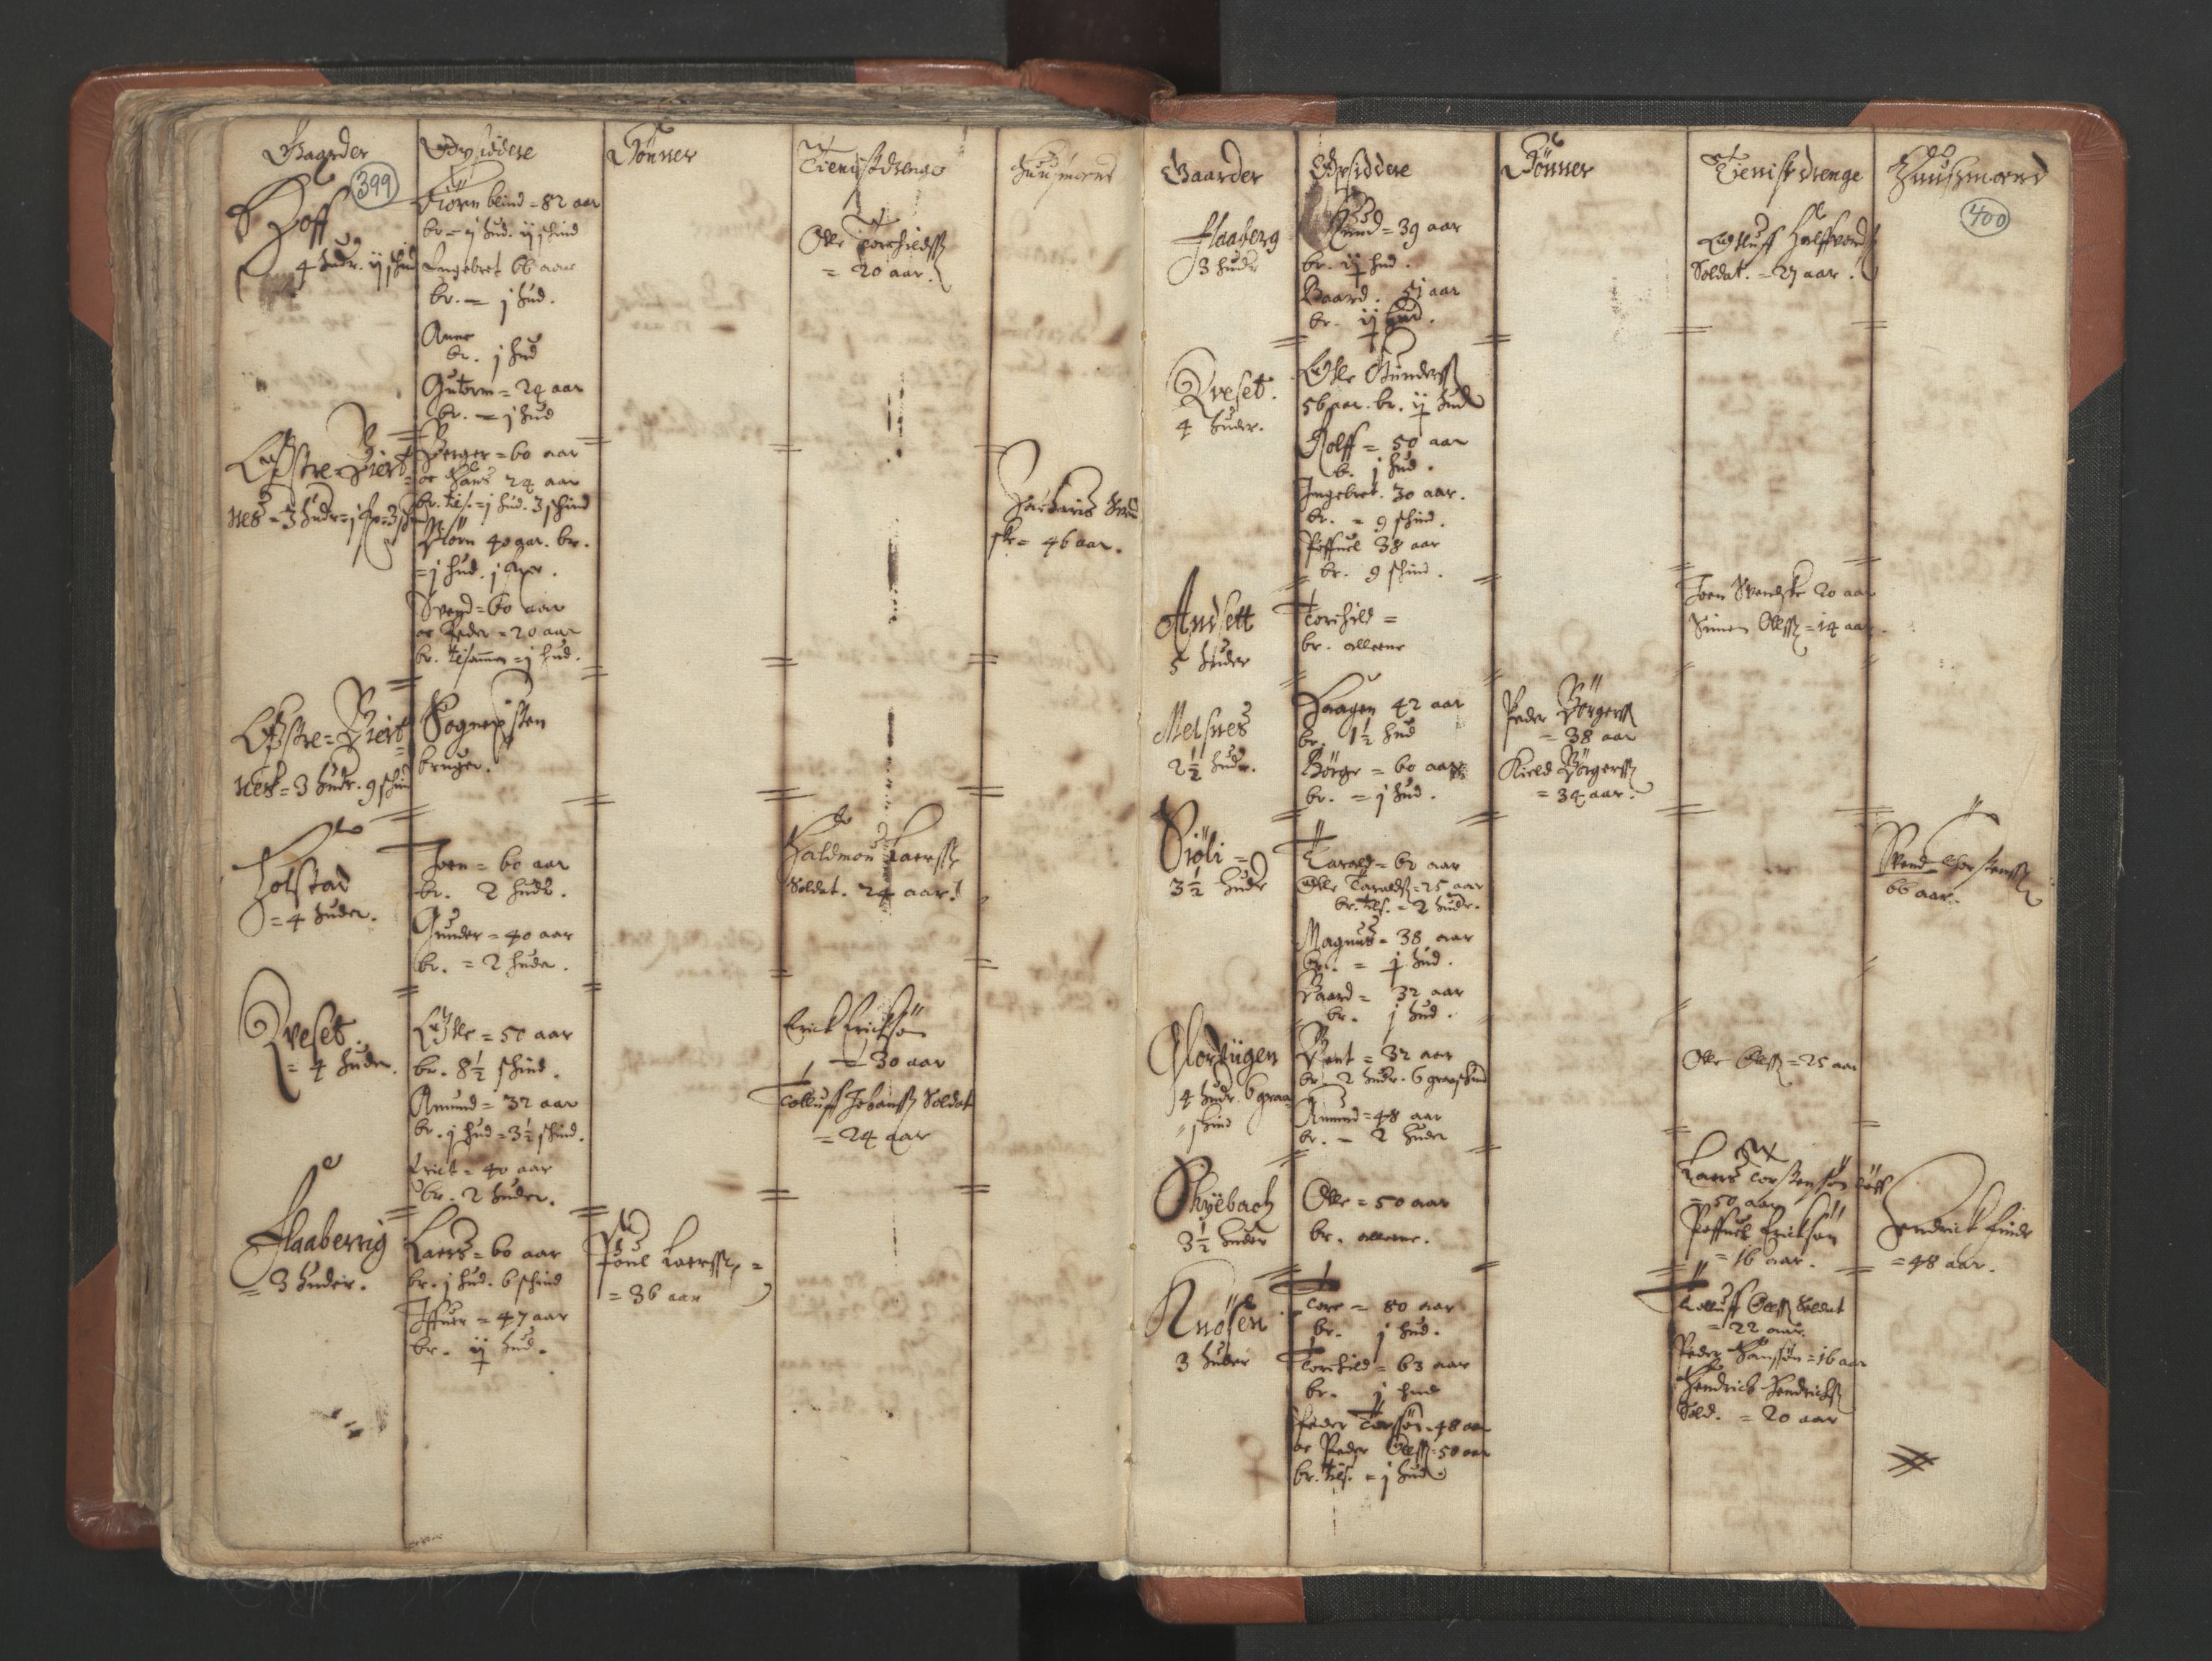 Gaarder
Opsiddere
Sønner
Tienistdrenge
Huusmend
399
Hoff
4 hudr. ij skind
Biørn blind = 82 aar
br. = j hud. ij skind
Ingebret 66 aar
br. = j hud.
Anne
br. j hud
Gutorm = 24 aar
br. = j hud
Olle Torchildss
= 20 aar.
Østre = Biert-
nes = 3 hudr =
Berger = 60 aar
oc Hans 24 aar
br. tils. = j hud. 3 skind
Biörn 40 aar. br.
= j hud. j
Svend = 60 aar
oc Peder = 20 aar
br. tilsammen = j hud.
= 46 aar.
Biert-
nes = 3 hudr. 9 skind
Sogneprsten
bruger.
Holstad
= 4 huder.
Joen = 60 aar
br. 2 hudr.
Gunder = 40 aar
br. = 2 huder.
Haldmon Laerss
Soldat. 24 aar.
Qveset.
= 4 huder.
= 50 aar
br. 8½ skind.
Amund = 32 aar
br. j hud = 3½ skind.
Erick = 40 aar
br. 2 huder.
Erick Ericksøn
= 30 aar
Tolluff Johanss Soldat
= 24 aar
Flaaberrig
= 3 huder.
Laers = 60 aar
br. j hud. 6 skind
Iffuer = 47 aar
br. ij hud.
Poul Laerss =
= 36 aar
Gaarder
Opsiddere
Sönner
Tienistdrenge
Huusmend
400
Flaaberg
3 hudr
= 39 aar
br. ij hud.
Baard. 51 aar
br. ij hud.
Halffvords
Soldat. = 27 aar.
Qveset.
4 huder.
Olle Gunderss
56 aar. br. ij hud
Rolff = 50 aar
b. j hud.
Ingebret. 30 aar.
br. = 9 skind.
Poffuel 38 aar
br. 9 skind.
Andsett
5 huder
Torchild =
br. alleene
Joen Svendske 20 aar
Simen Olss = 14 aar.
Melsnes
2½ hudr.
Haagen 42 aar
br. 1½ hud
Börge = 60 aar
br. = j hud.
Peder Börgerss
= 38 aar
Kield Börgerss
= 34 aar.
Siöli =
3½ hudr
Tarald = 62 aar
Olle Taraldss = 25 aar
br. tils. = 2 hudr.
Magnus = 38 aar
br. = j hud.
Baard = 32 aar
br. j hud.
Svend
66 aar.
Glorüigen
4 hudr. 6 graa
skind
Bent = 32 aar
br. 2 hudr. 6 graaskind
Amund = 48 aar
br. = 2 huder
Olle Olss = 25 aar
Skÿebach
3½ huder
Olle = 50 aar
br. alleene.
Laers Torstensøn
= 50 aar
Poffuel Ericksøn
= 16 aar.
Hendrick Finde
= 48 aar.
Knösen
3 huder
Tore = 80 aar
br. j hud.
Torchild = 63 aar
br. j hud
Peder Torssøn = 48 aar
oc Peder Olss = 50 aar
br. tils. = j hud
Tolluff Olss Soldat
= 22 aar.
Peder Hanssøn = 16 aar
Hendrich Hendrichss
Sold. = 20 aar